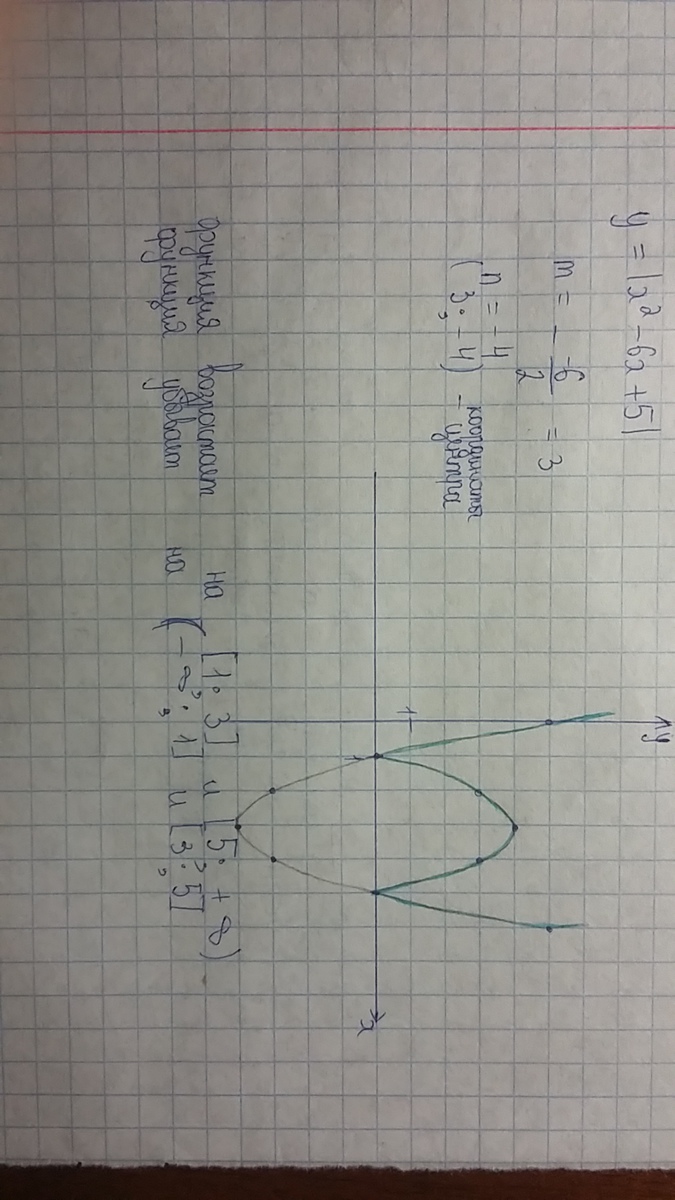 y = |x² - 6x + 5|
m = - -6/2 = 3
n = -4
(3; -4) - координаты центра
y
1
1
x
функция возрастает на [1; 3] и [5; +∞)
функция убывает на (-∞; 1] и [3; 5]